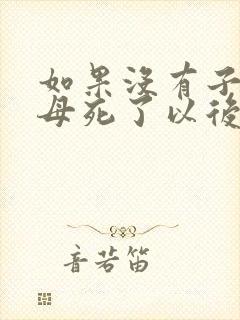 如果没有子
母死了以後
音若笛